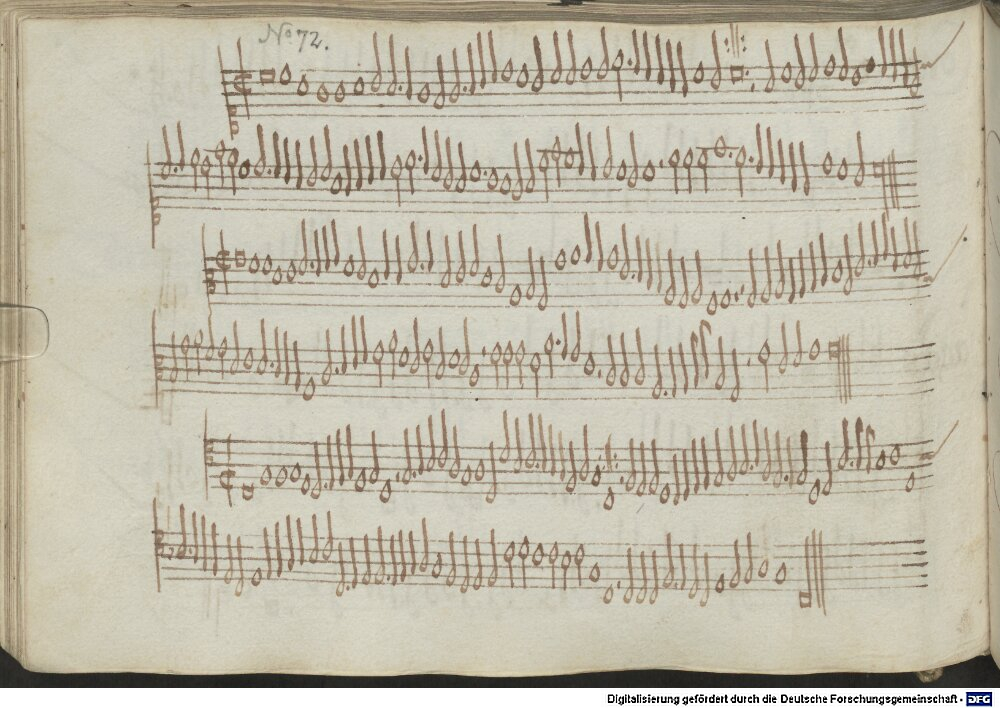 No 72.
Digitalisierung gefördert durch die Deutsche Forschungsgemeinschaft - DFG